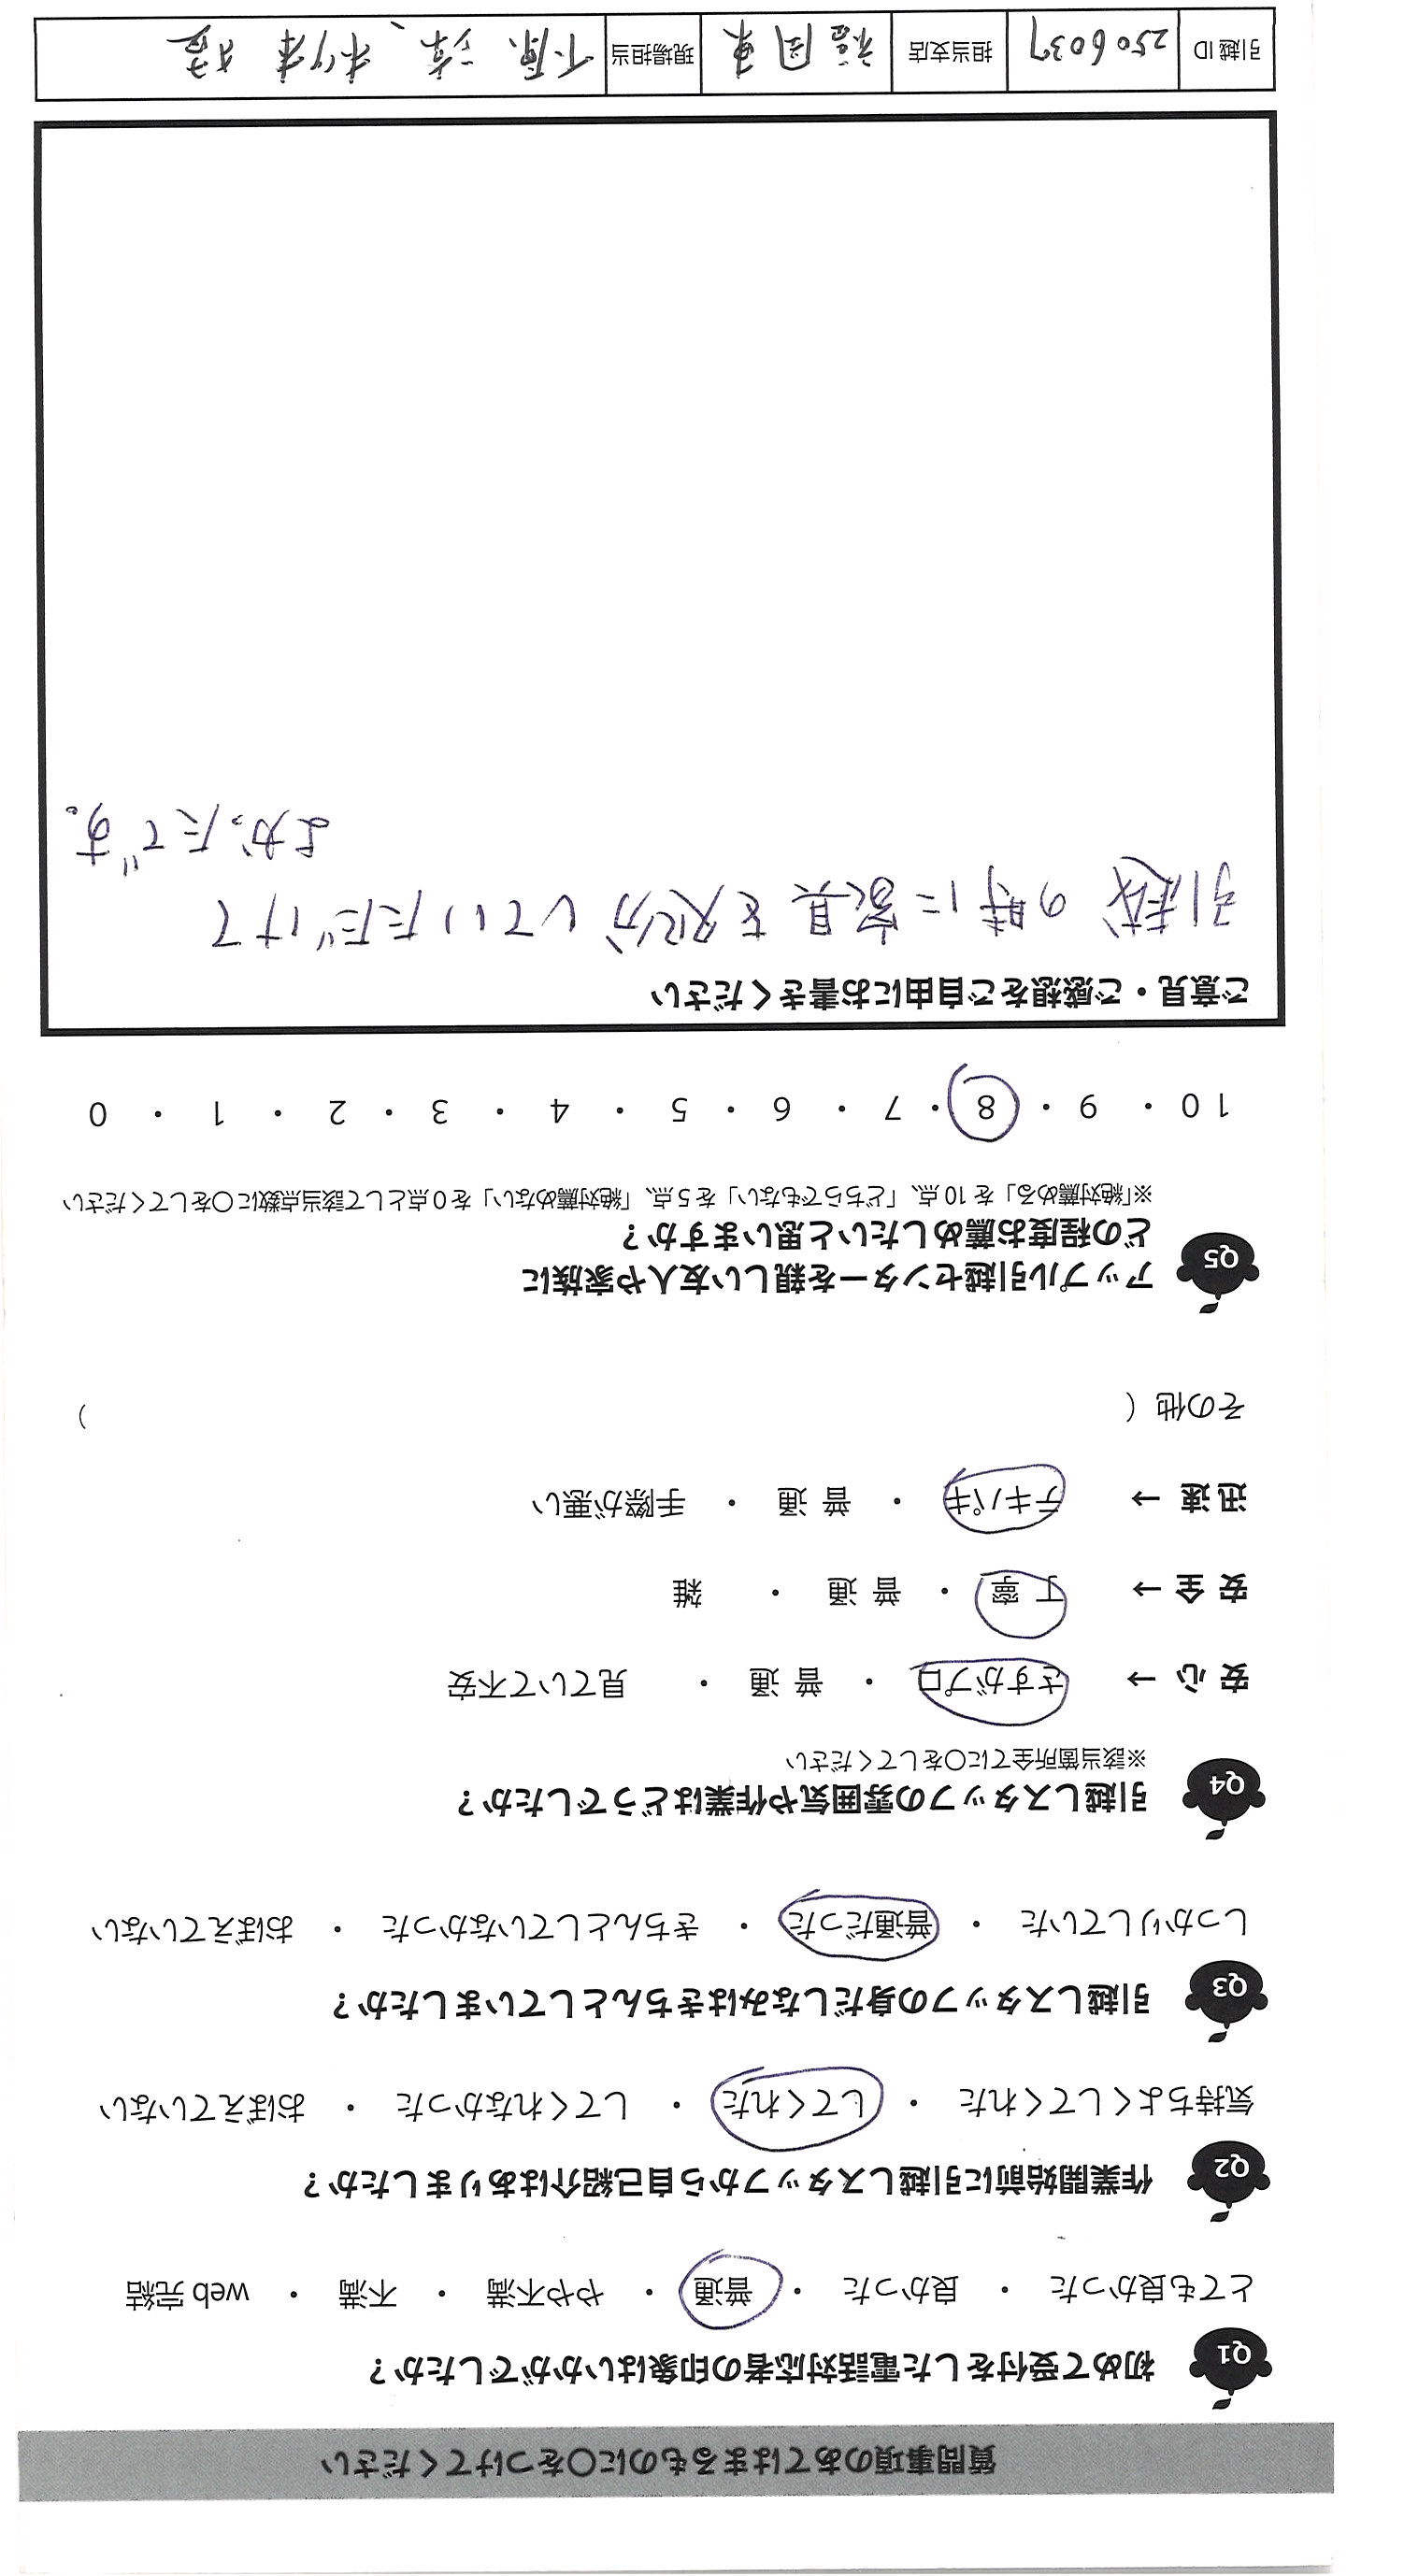 質問事項のあてはまるものに〇をつけてください
Q1 初めて受付をした電話対応者の印象はいかがでしたか？
とても良かった ・ 良かった ・ 普通 ・ やや不満 ・ 不満 ・ web 完結
Q2 作業開始前に引越しスタッフから自己紹介はありましたか？
気持ちよくしてくれた ・ してくれた ・ してくれなかった ・ おぼえていない
Q3 引越しスタッフの身だしなみはきちんとしていましたか？
しっかりしていた ・ 普通だった ・ きちんとしていなかった ・ おぼえていない
Q4 引越しスタッフの雰囲気や作業はどうでしたか？
※該当箇所全てに〇をしてください
安 心 → さすがプロ ・ 普 通 ・ 見ていて不安
安 全 → 丁 寧 ・ 普 通 ・ 雑
迅 速 → テキパキ ・ 普 通 ・ 手際が悪い
その他（ ）
Q5 アップル引越センターを親しい友人や家族に
どの程度お薦めしたいと思いますか？
※「絶対薦める」を 10 点、「どちらでもない」を 5 点、「絶対薦めない」を 0 点として該当点数に〇をしてください
10 ・ 9 ・ 8 ・ 7 ・ 6 ・ 5 ・ 4 ・ 3 ・ 2 ・ 1 ・ 0
ご意見・ご感想をご自由にお書きください
引越の時に家具を処分していただけて
よかったです。
引越 ID 2506037 担当支店 福岡東 現場担当